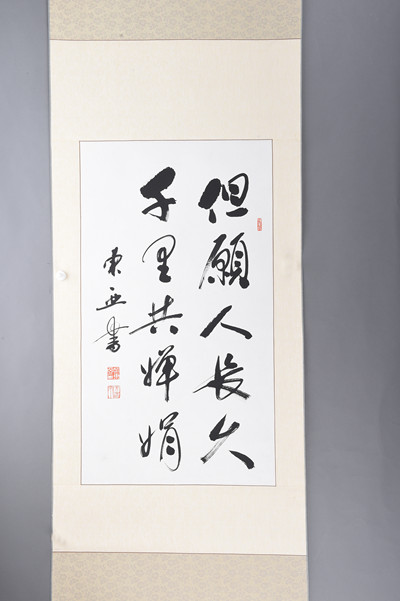 但願人長久
千里共嬋娟
東亜書